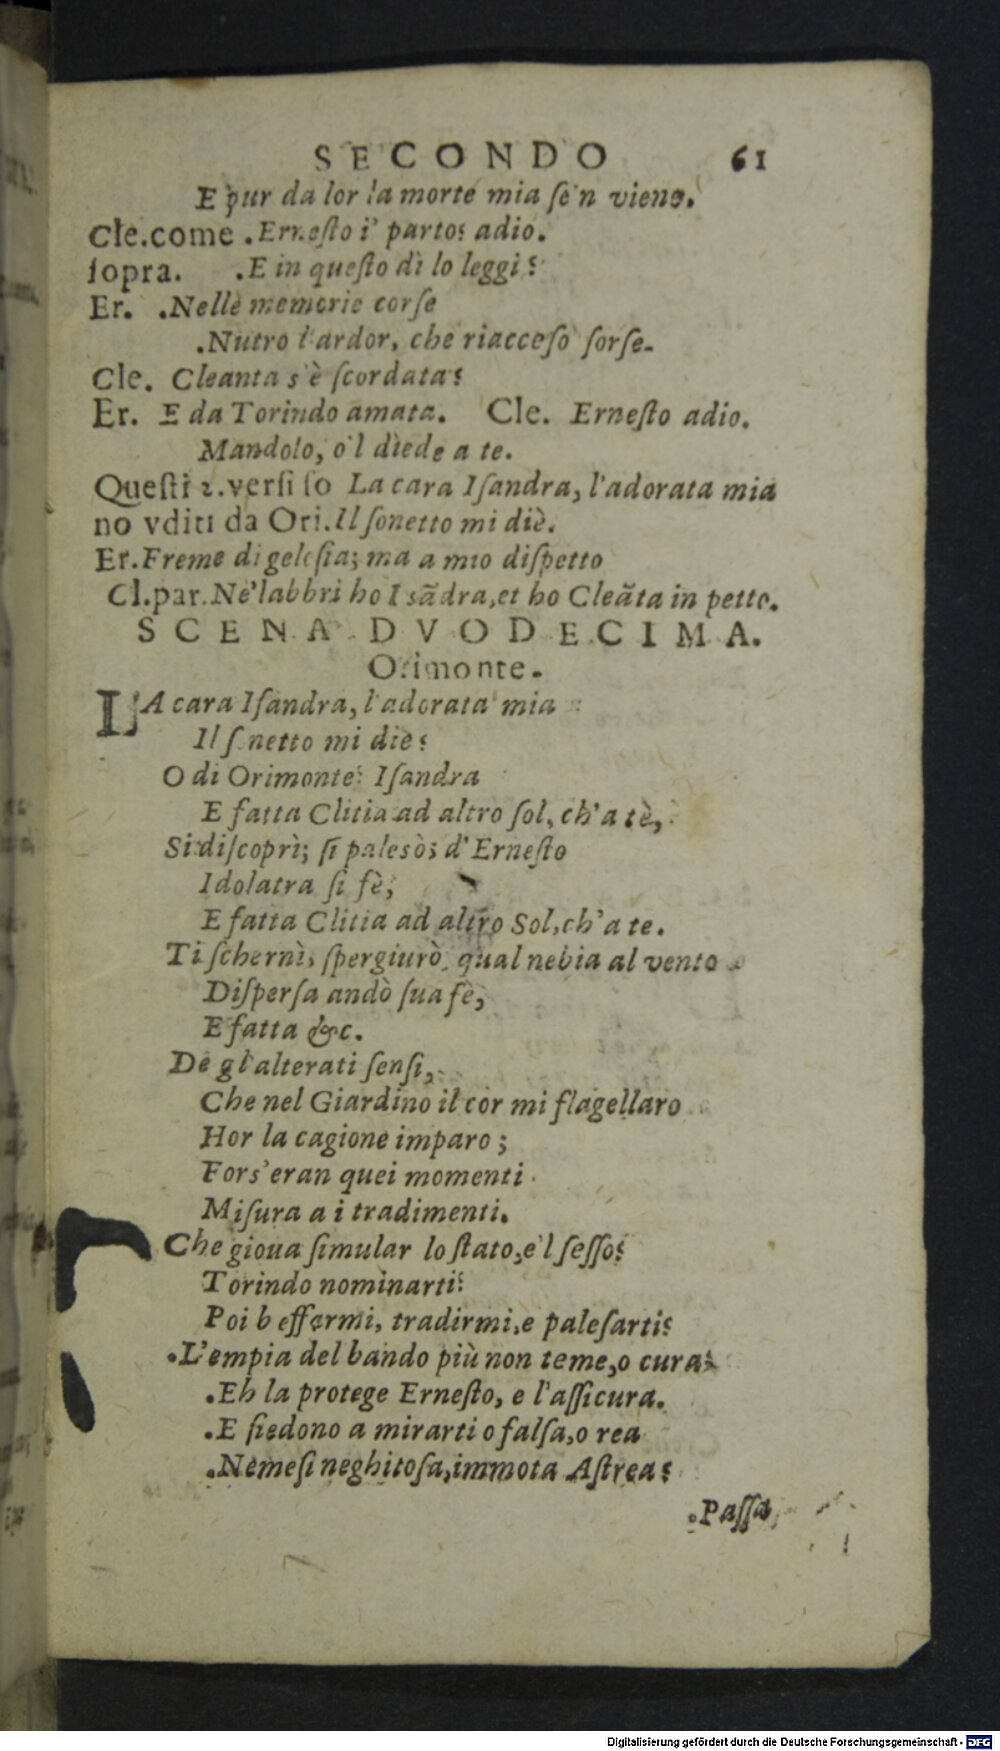 SECONDO 61
E pur da lor la morte mia ſe'n viene.
Cle.come .Erneſto i' parto? adio.
ſopra. .E in queſto dì lo leggi?
Er. .Nelle memorie corſe
.Nutro l'ardor, che riacceſo ſorſe.
Cle. Cleanta s'è ſcordata?
Er. E da Torindo amata. Cle. Erneſto adio.
Mandolo, o'l diede a te.
Queſti 2.verſi ſo La cara Iſandra, l'adorata mia
no vditi da Ori.Il ſonetto mi diè.
Er.Freme di geloſia; ma a mio diſpetto
Cl.par.Ne'labbri ho Isãdra,et ho Cleãta in petto.
SCENA DVODECIMA.
Orimonte.
LA cara Iſandra, l'adorata mia
Il ſonetto mi die?
O di Orimonte? Iſandra
E fatta Clitia ad altro ſol, ch'a tè,
Si diſcoprì; ſi palesò; d'Erneſto
Idolatra ſi fè;
E fatta Clitia ad altro Sol,ch'a te.
Ti ſchernì, ſpergiurò, qual nebia al vento
Diſperſa andò ſua fè;
E fatta &c.
De gl'alterati ſenſi,
Che nel Giardino il cor mi flagellaro
Hor la cagione imparo;
Fors'eran quei momenti
Miſura a i tradimenti.
Che gioua ſimular lo ſtato,e'l ſeſſo?
Torindo nominarti?
Poi beffarmi, tradirmi,e paleſarti?
.L'empia del bando più non teme,o cura?
.Eh la protege Erneſto, e l'aſſicura.
.E ſiedono a mirarti o falſa,o rea
.Nemeſi neghitoſa,immota Aſtrea?
.Paſſa
Digitalisierung gefördert durch die Deutsche Forschungsgemeinschaft - DFG